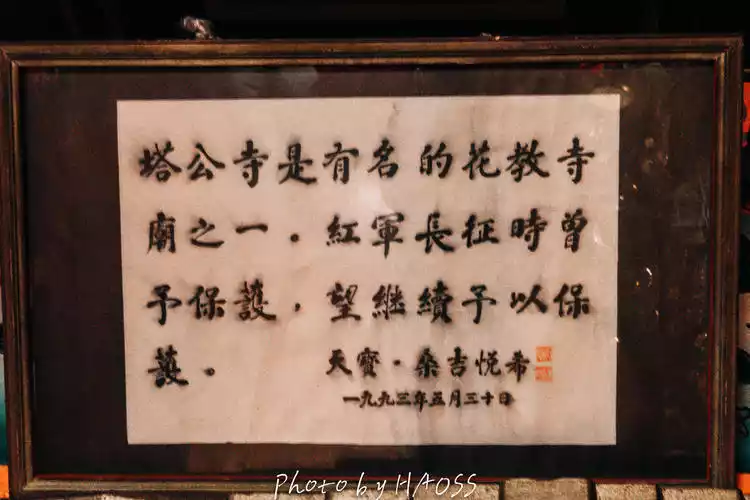 塔公寺是有名的花教寺
廟之一.紅軍長征時曾
予保護,望繼續予以保
護。
天寶·桑吉悅希
一九九三年五月三十日
Photo by HAOSS